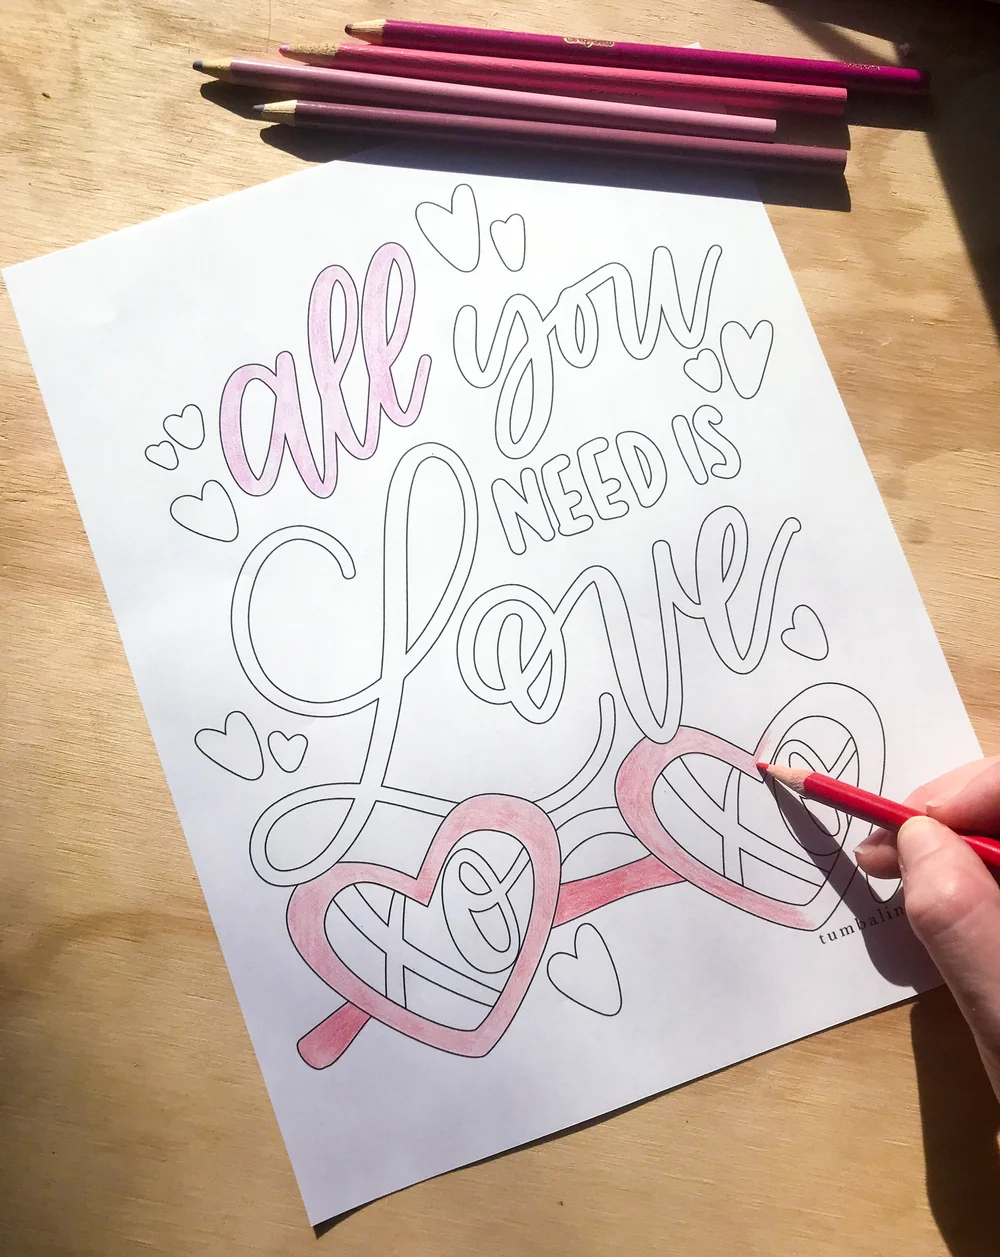 all you
NEED IS
Love
xo xo
tumbalin
Crayola